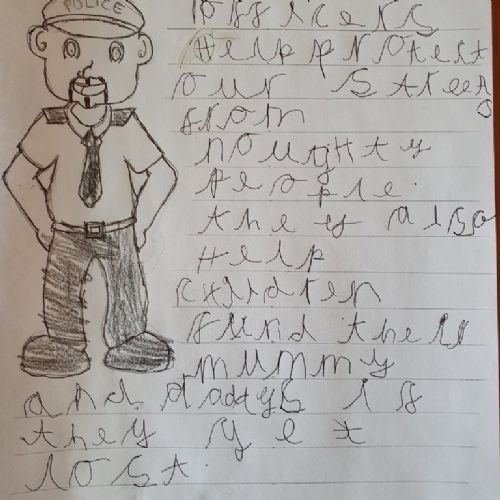 POLICE
officers
Help protect
our streets
from
noughty
people.
they also
Help
children
fund their
mummy
and daddys if
they get
lost.